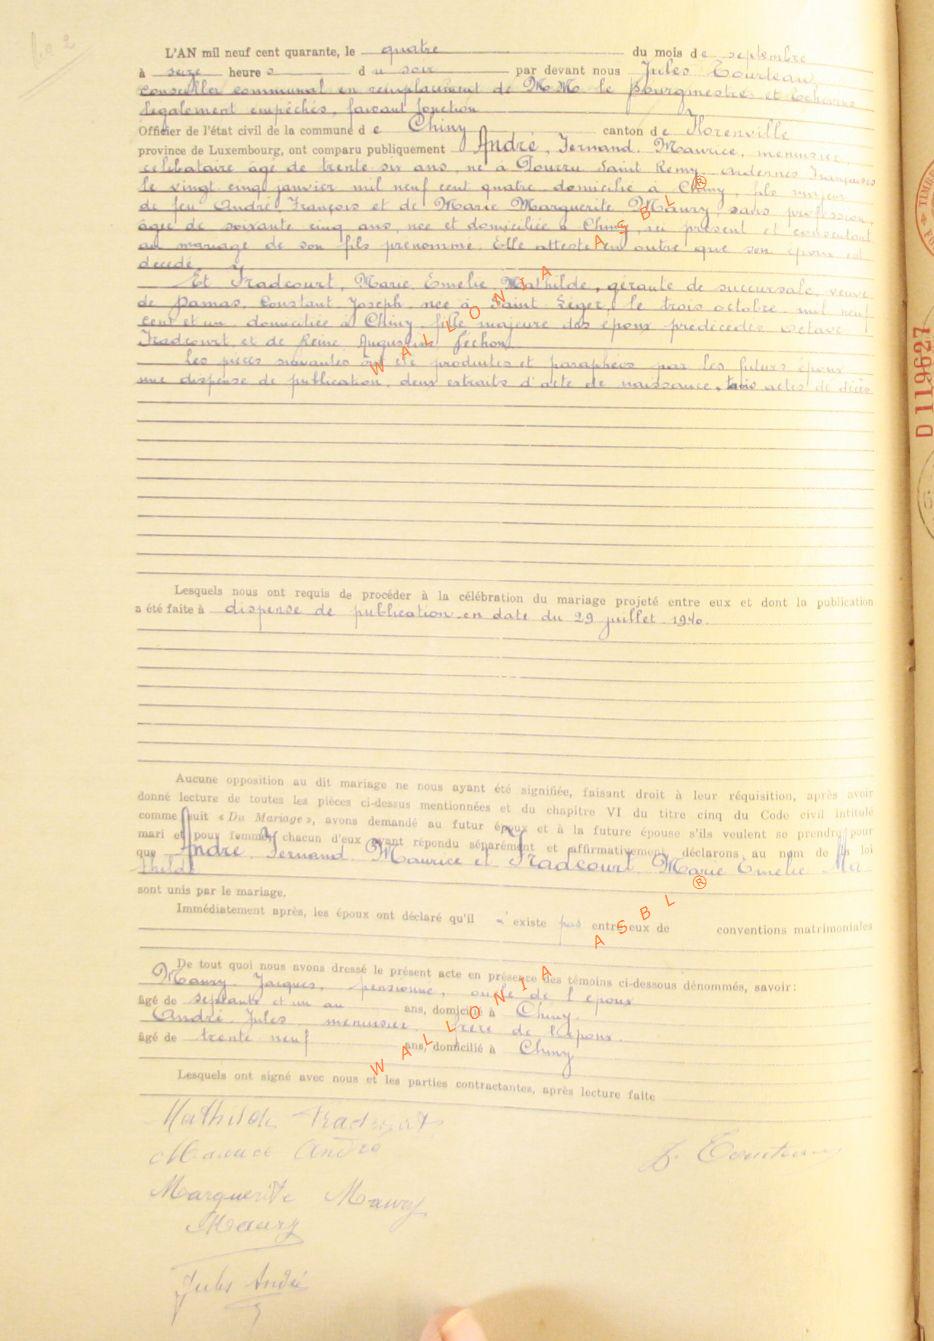 No 2
L'AN mil neuf cent quarante, le quatre du mois de septembre
à seize heures du soir par devant nous Jules Tourteau
conseiller communal en remplacement de M.M. le Bourgmestre et Echevins
légalement empêchés, faisant fonction
Officier de l'état civil de la commune de Chiny canton de Florenville
province de Luxembourg, ont comparu publiquement André, Fernand, Maurice, menuisier,
célibataire âgé de trente six ans, né à Pouru Saint Remy, Ardennes Françaises
le vingt cinq janvier mil neuf cent quatre domicilié à Chiny, fils majeur
de feu André François et de Marie Marguerite Maury, sans profession,
âgée de soixante cinq ans, née et domiciliée à Chiny, ici présent et consentant
au mariage de son fils prénommé. Elle atteste en outre que son époux est
décédé.
Et Tradcourt, Marie, Emélie, Mathilde, gérante de succursale, veuve
de Damas, Constant, Joseph, née à Saint-Léger, le trois octobre mil neuf
cent et un domiciliée à Chiny, fille majeure des époux prédécédés Octave
Tradcourt et de Reine Augustine Féchon
Les pièces suivantes ont été produites et paraphées par les futurs époux
une dispense de publication, deux extraits d'acte de naissance, trois actes de décès
Lesquels nous ont requis de procéder à la célébration du mariage projeté entre eux et dont la publication
a été faite à dispense de publication en date du 29 juillet 1940.
Aucune opposition au dit mariage ne nous ayant été signifiée, faisant droit à leur réquisition, après avoir
donné lecture de toutes les pièces ci-dessus mentionnées et du chapitre VI du titre cinq du Code civil intitulé
comme suit « Du Mariage », avons demandé au futur époux et à la future épouse s'ils veulent se prendre pour
mari et pour femme, chacun d'eux ayant répondu séparément et affirmativement, déclarons au nom de la loi
que André Fernand Maurice et Tradcourt Marie Emélie Ma
thilde
sont unis par le mariage.
Immédiatement après, les époux ont déclaré qu'il n'existe pas entre eux de conventions matrimoniales
De tout quoi nous avons dressé le présent acte en présence des témoins ci-dessous dénommés, savoir:
Maury Jacques, pensionné, oncle de l'époux
âgé de septante et un an ans, domicilié à Chiny.
André Jules menuisier frère de l'époux.
âgé de trente neuf ans, domicilié à Chiny
Lesquels ont signé avec nous et les parties contractantes, après lecture faite
Mathilde Tradcourt
Maurice André
J. Tourteau
Marguerite Maury
JMaury
Jules André
WALLONIA ASBL ®
WALLONIA ASBL ®
D 119627